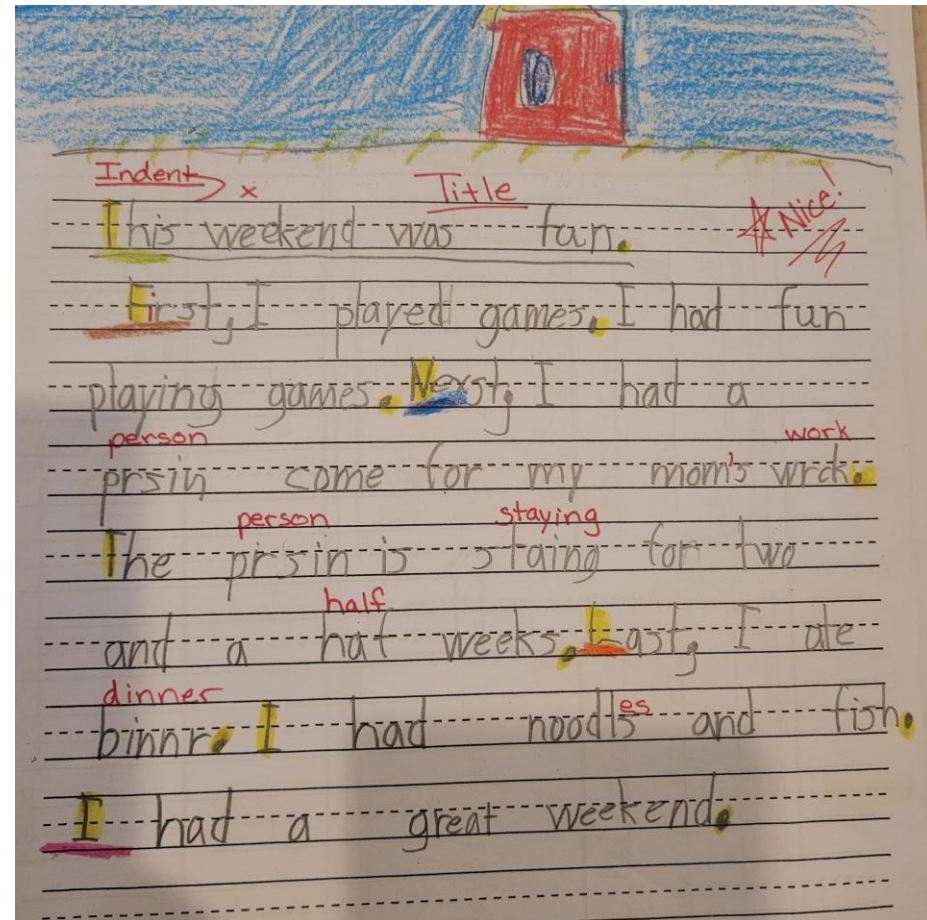 Indent x Title Nice!
This weekend was fun.
First, I played games. I had fun
playing games. Nexst, I had a
person work
prsin come for my mom's wrck.
person staying
The prsin is staing for two
half
and a haf weeks. Last, I ate
dinner
binnr. I had noodls es and fish.
I had a great weekend.